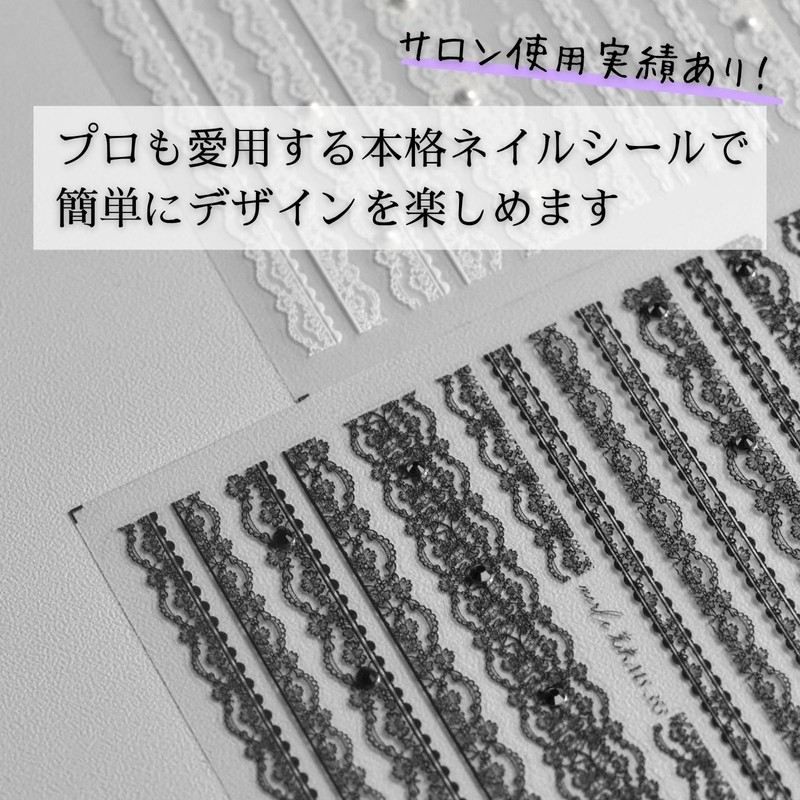 サロン使用実績あり!
プロも愛用する本格ネイルシールで
簡単にデザインを楽しめます